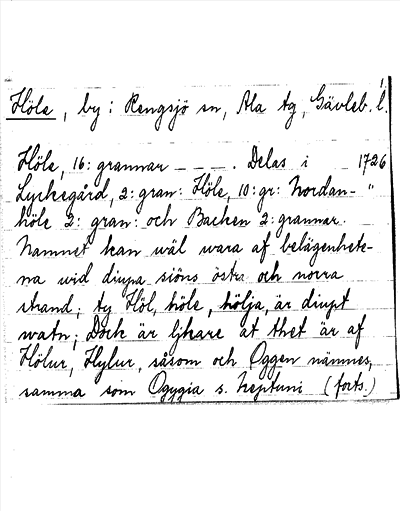 1.
Höle, by i Rengsjö sn, Ala tg, Gävleb. l.
Höle, 16: grannar — — —. Delas i 1726
Lyckegård, 2: gran: Höle, 10: gr: Nordan- "
höle 2: gran: och Backen 2: grannar.
Namnet kan wäl wara af belägenhete-
na wid diupa siöns östra och norra
strand; ty Höl, höle, hölja, är diupt
watn; Dock är ljkare at thet är af
Hölur, Hylur, såsom och Oggen nämnes,
samma som Ogygia s. Neptuni (forts.)